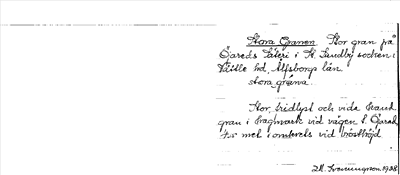 Stora Granen Stor gran på
Öareds Säteri i St. Lundby socken i
Vättle hd, Älfsborgs län.
stora grana.
Stor, vidlyft och vida känd
gran i hagmark vid vägen t. Öared
4,5 met i omkrets vid brösthöjd
1938